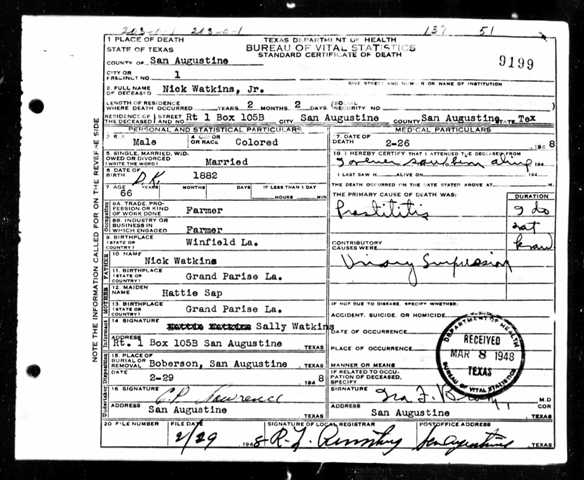 1 PLACE OF DEATH
TEXAS DEPARTMENT OF HEALTH
51
STATE OF TEXAS
BUREAU OF VITAL STATISTICS
STANDARD CERTIFICATE OF DEATH
9199
COUNTY OF San Augustine
CITY OR PRECINCT NO. 1
2. FULL NAME OF DECEASED Nick Watkins, Jr.
LENGTH OF RESIDENCE WHERE DEATH OCCURRED YEARS 2 MONTHS 2 DAYS
RESIDENCE OF THE DECEASED STREET AND NO. Rt 1 Box 105B CITY San Augustine COUNTY San Augustine, Tex
PERSONAL AND STATISTICAL PARTICULARS
MEDICAL PARTICULARS
Male 4. COLOR OR RACE Colored
7. DATE OF DEATH 2-26 194 8
5. SINGLE, MARRIED, WID- OWED OR DIVORCED (WRITE THE WORD) Married
I HEREBY CERTIFY THAT I ATTENDED THE DECEASED FROM
6. DATE OF BIRTH D.K. 1882
I LAST SAW H ALIVE ON 194
7. AGE 66 YEARS MONTHS DAYS IF LESS THAN 1 DAY
THE DEATH OCCURRED ON THE DATE STATED ABOVE AT M.
THE PRIMARY CAUSE OF DEATH WAS: DURATION
8A. TRADE, PROFESSION OR KIND OF WORK DONE Farmer
8B. INDUSTRY OR BUSINESS IN WHICH ENGAGED Farmer
9. BIRTHPLACE (STATE OR COUNTRY) Winfield La.
CONTRIBUTORY CAUSES WERE:
10. NAME Nick Watkins
11. BIRTHPLACE (STATE OR COUNTRY) Grand Parise La.
12. MAIDEN NAME Hattie Sap
13. BIRTHPLACE (STATE OR COUNTRY) Grand Parise La.
IF NOT DUE TO DISEASE, SPECIFY WHETHER:
ACCIDENT, SUICIDE, OR HOMICIDE
14 SIGNATURE Hattie Watkins Sally Watkins
DATE OF OCCURRENCE
ADDRESS Rt. 1 Box 105B San Augustine TEXAS
PLACE OF OCCURRENCE
15. PLACE OF BURIAL OR REMOVAL Boberson, San Augustine TEXAS
MANNER OR MEANS
2-29 194 8
IF RELATED TO OCCUPATION OF DECEASED, SPECIFY
16 SIGNATURE Lawrence
SIGNATURE M.D
ADDRESS San Augustine TEXAS
ADDRESS San Augustine TEXAS
20 FILE NUMBER FILE DATE SIGNATURE OF LOCAL REGISTRAR POSTOFFICE ADDRESS
2/29 1948 San Augustine TEXAS
DEPARTMENT OF HEALTH
RECEIVED
MAR 8 1948
TEXAS
BUREAU OF VITAL STATISTICS
NOTE THE INFORMATION CALLED FOR ON THE REVERSE SIDE